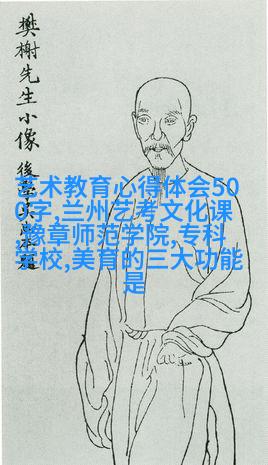 樊榭先生小像
後學
艺术教育心得体会50
0字,兰州艺考文化课
,豫章师范学院,专科
校,美育的三大功能
是